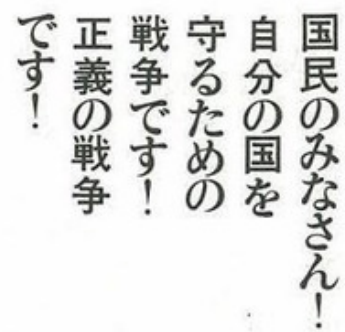 国民のみなさん！
自分の国を
守るための
戦争です！
正義の戦争
です！